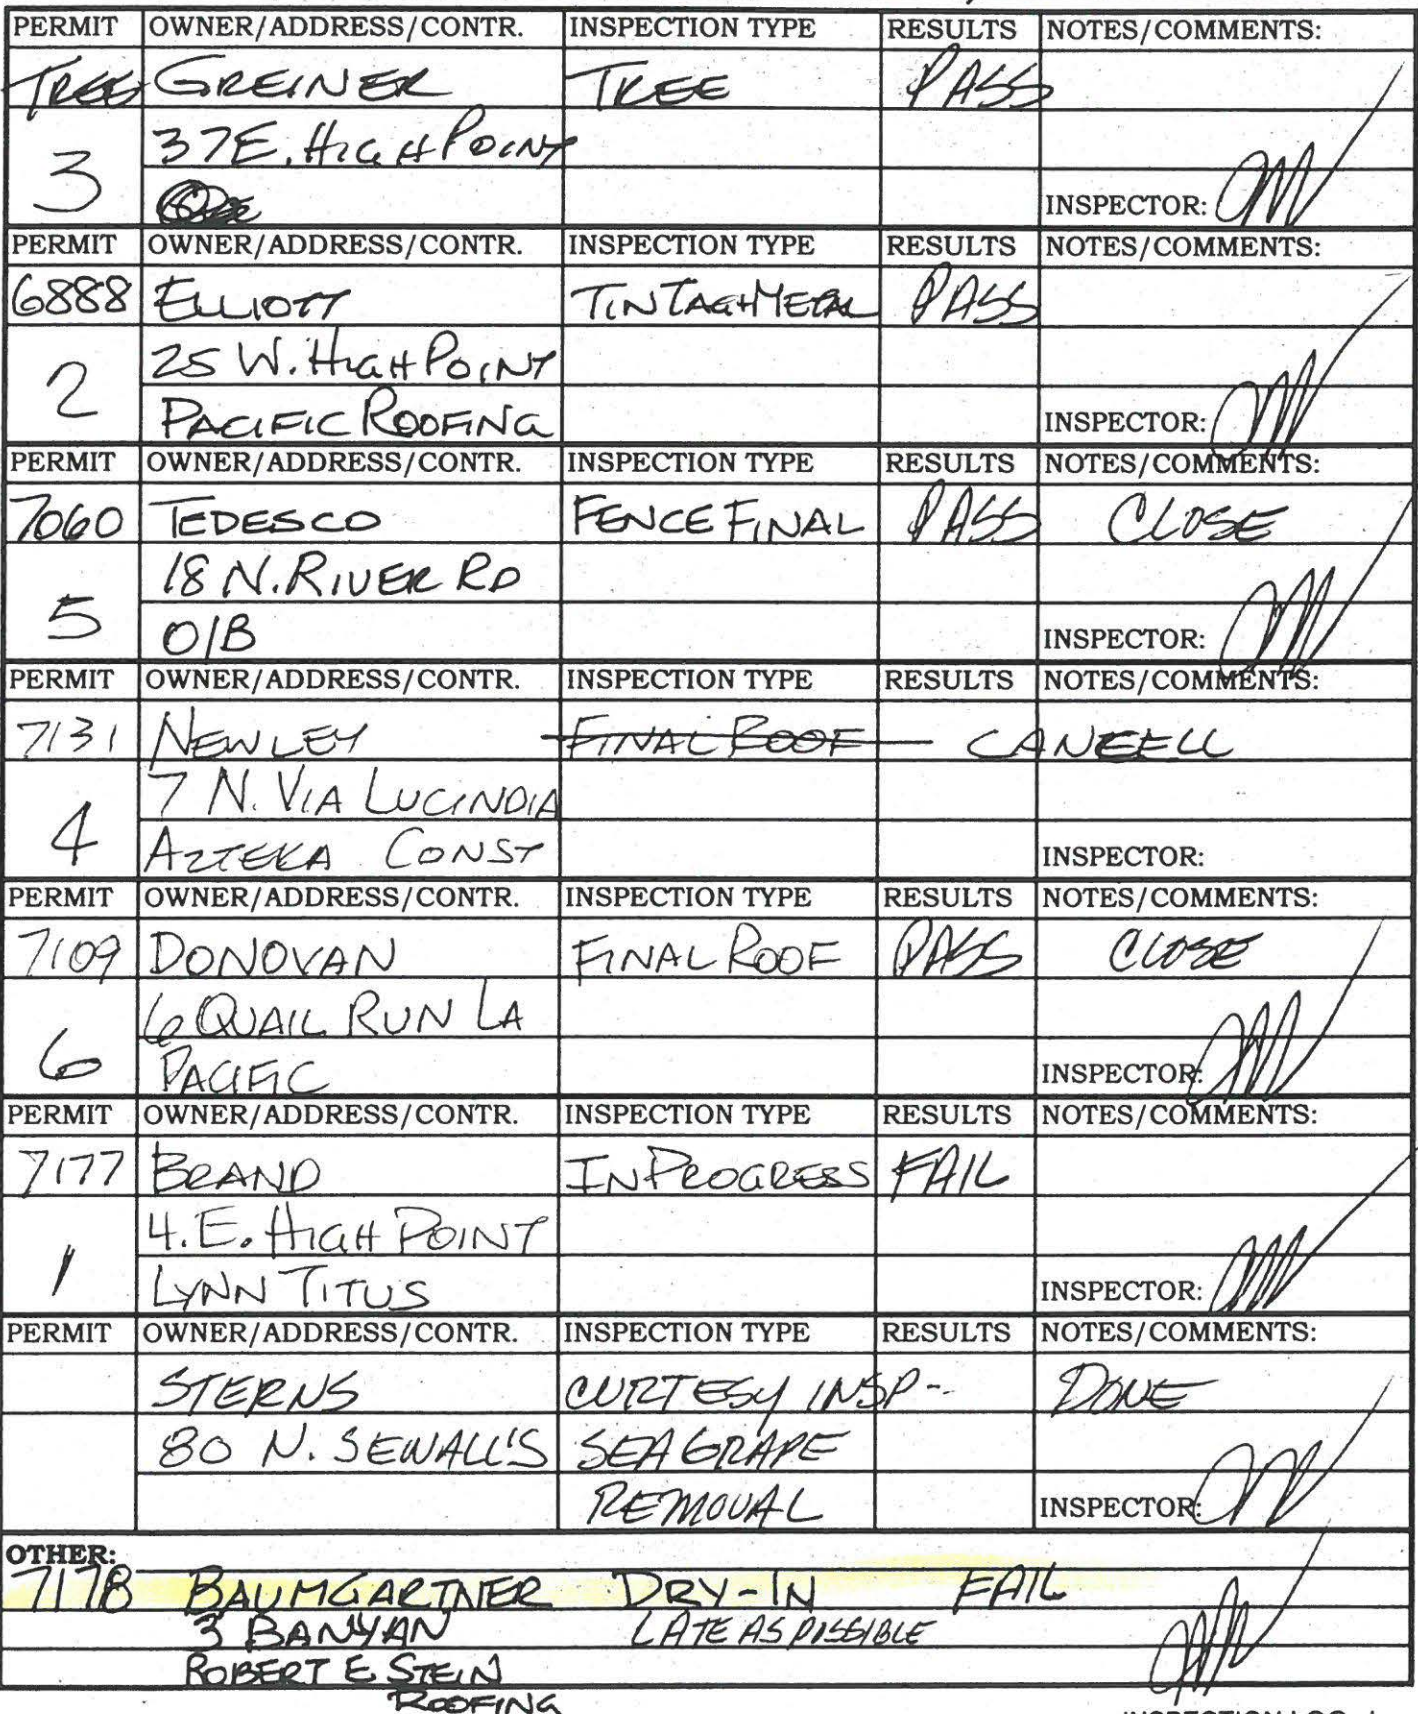 PERMIT OWNER/ADDRESS/CONTR. INSPECTION TYPE RESULTS NOTES/COMMENTS:
TREE GREINER TREE PASS
37 E. HIGH POINT
3 INSPECTOR:
PERMIT OWNER/ADDRESS/CONTR. INSPECTION TYPE RESULTS NOTES/COMMENTS:
6888 ELLIOTT TIN TAG+METAL PASS
25 W. HIGH POINT
2 PACIFIC ROOFING INSPECTOR:
PERMIT OWNER/ADDRESS/CONTR. INSPECTION TYPE RESULTS NOTES/COMMENTS:
7060 TEDESCO FENCE FINAL PASS CLOSE
18 N. RIVER RD
5 O/B INSPECTOR:
PERMIT OWNER/ADDRESS/CONTR. INSPECTION TYPE RESULTS NOTES/COMMENTS:
7131 NEWLEY FINAL ROOF CANCELL
7 N. VIA LUCINDIA
4 AZTEKA CONST INSPECTOR:
PERMIT OWNER/ADDRESS/CONTR. INSPECTION TYPE RESULTS NOTES/COMMENTS:
7109 DONOVAN FINAL ROOF PASS CLOSE
6 QUAIL RUN LA
6 PACIFIC INSPECTOR:
PERMIT OWNER/ADDRESS/CONTR. INSPECTION TYPE RESULTS NOTES/COMMENTS:
7177 BRAND IN PROGRESS FAIL
4. E. HIGH POINT
1 LYNN TITUS INSPECTOR:
PERMIT OWNER/ADDRESS/CONTR. INSPECTION TYPE RESULTS NOTES/COMMENTS:
STERNS CURTESY INSP- DONE
80 N. SEWALL'S SEA GRAPE
REMOVAL INSPECTOR:
OTHER:
7178 BAUMGARTNER DRY-IN FAIL
3 BANYAN LATE AS POSSIBLE
ROBERT E STEIN
ROOFING